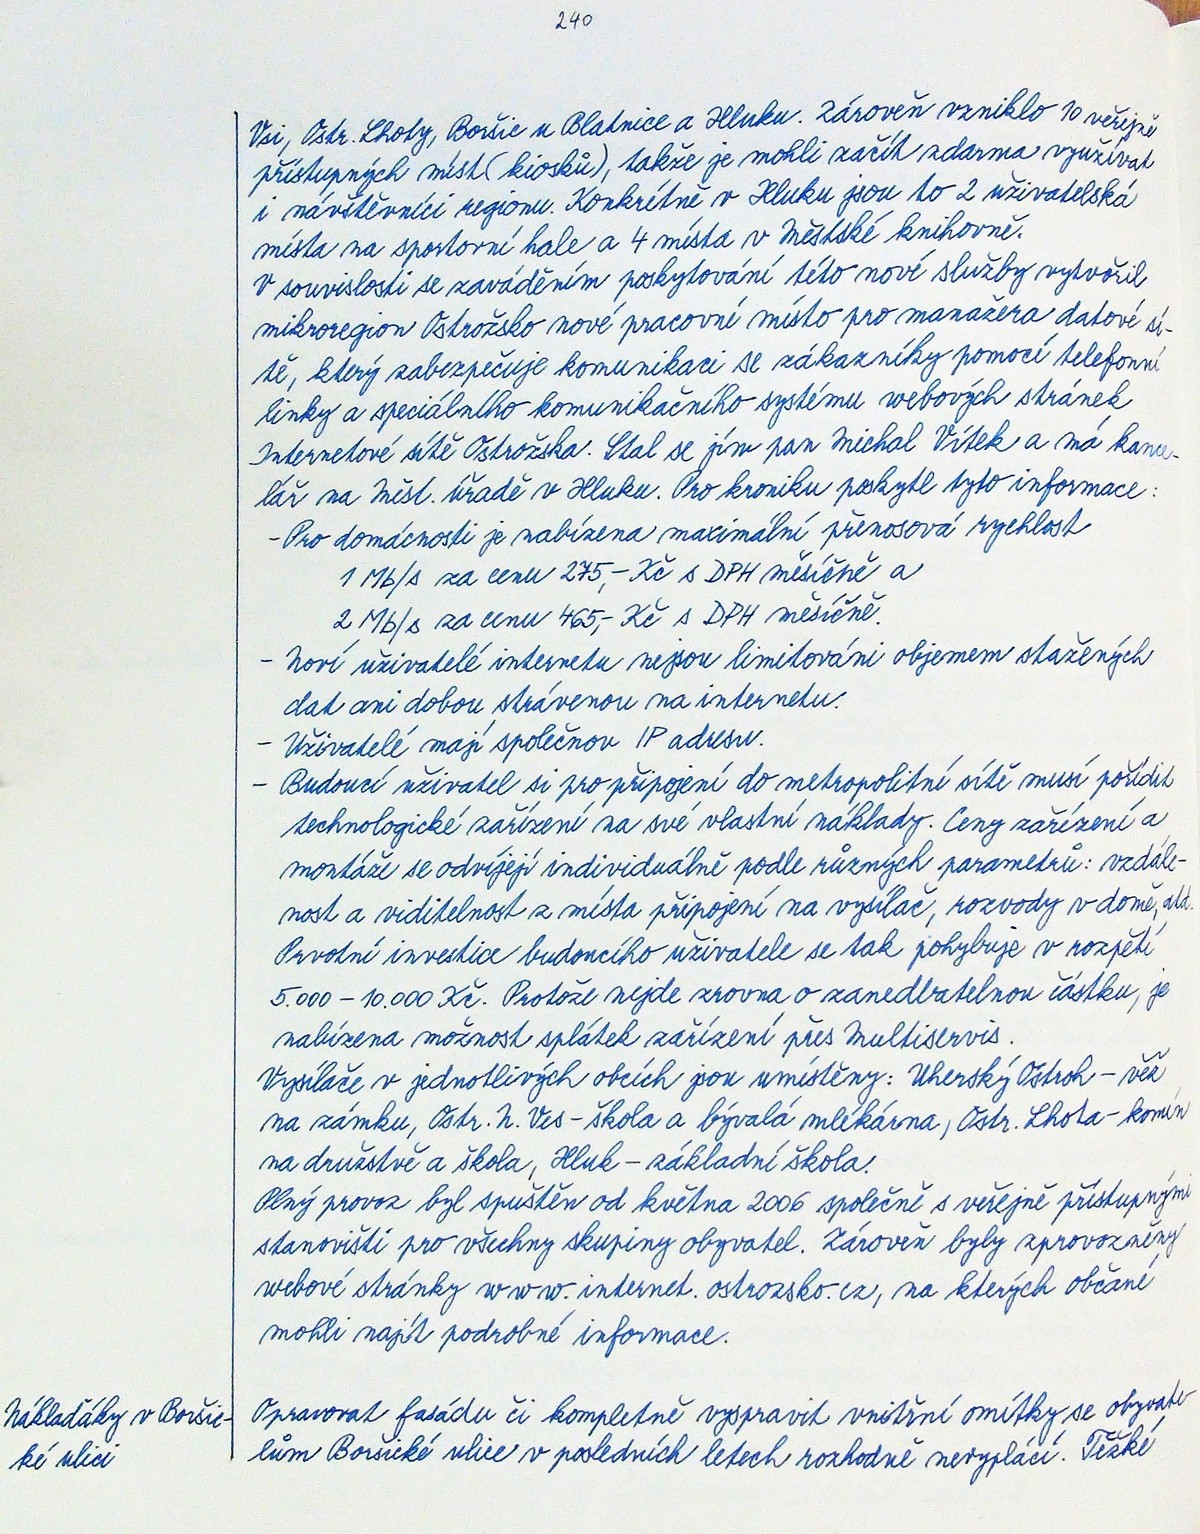 240
Vsi, Ostr. Lhoty, Boršic u Blatnice a Hluku. Zároveň vzniklo 10 veřejně
přístupných míst (kiosků), takže je mohli začít zdarma využívat
i návštěvníci regionu. Konkrétně v Hluku jsou to 2 uživatelská
místa na sportovní hale a 4 místa v Městské knihovně.
V souvislosti se zaváděním poskytování této nové služby vytvořil
mikroregion Ostrožsko nové pracovní místo pro manažera datové sí-
tě, který zabezpečuje komunikaci se zákazníky pomocí telefonní
linky a speciálního komunikačního systému webových stránek
Internetové sítě Ostrožska. Stal se jím pan Michal Vítek a má kance-
lář na Měst. úřadě v Hluku. Pro kroniku poskytl tyto informace:
- Pro domácnosti je nabízena maximální přenosová rychlost
1 Mb/s za cenu 275,- Kč s DPH měsíčně a
2 Mb/s za cenu 465,- Kč s DPH měsíčně.
- Noví uživatelé internetu nejsou limitováni objemem stažených
dat ani dobou strávenou na internetu.
- Uživatelé mají společnou IP adresu.
- Budoucí uživatel si pro připojení do metropolitní sítě musí pořídit
technologické zařízení na své vlastní náklady. Ceny zařízení a
montáže se odvíjejí individuálně podle různých parametrů: vzdále-
nost a viditelnost z místa připojení na vysílač, rozvody v domě, atd.
Prvotní investice budoucího uživatele se tak pohybuje v rozpětí
5.000 – 10.000 Kč. Protože nejde zrovna o zanedbatelnou částku, je
nabízena možnost splátek zařízení přes Multiservis.
Vysílače v jednotlivých obcích jsou umístěny: Uherský Ostroh – věž
na zámku, Ostr. N. Ves – škola a bývalá mlékárna, Ostr. Lhota – komín
na družstvě a škola, Hluk – základní škola.
Plný provoz byl spuštěn od května 2006 společně s veřejně přístupnými
stanovišti pro všechny skupiny obyvatel. Zároveň byly zprovozněny
webové stránky www.internet.ostrozsko.cz, na kterých občané
mohli najít podrobné informace.
Náklaďáky v Boršic-
ké ulici
Opravovat fasádu či kompletně vyspravit vnitřní omítky se obyvate
lům Boršické ulice v posledních letech rozhodně nevyplácí. Těžké